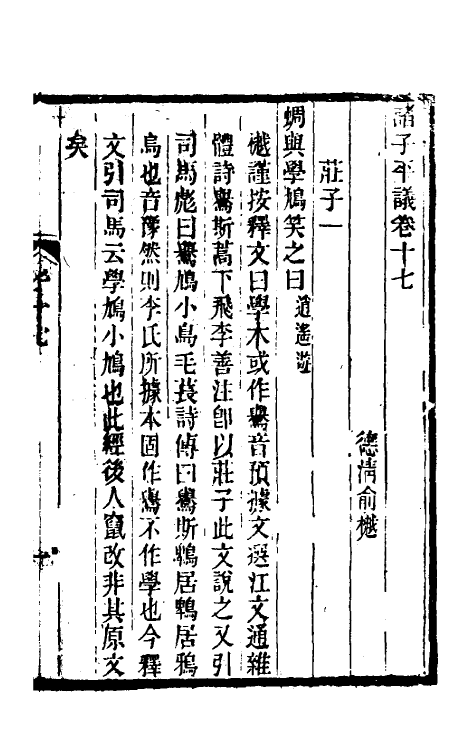 諸子平議卷十七
德清俞樾
莊子一
蜩與學鳩笑之曰逍遙遊
樾謹按釋文曰學本或作鷽音預據文選江文通雜
體詩鷽斯蒿下飛李善注卽以莊子此文說之又引
司馬彪曰鷽鳩小鳥毛萇詩傳曰鷽斯鵯居鵯居鴉
鳥也音豫然則李氏所據本固作鷽不作學也今釋
文引司馬云學鳩小鳩也此經後人竄改非其原文
矣